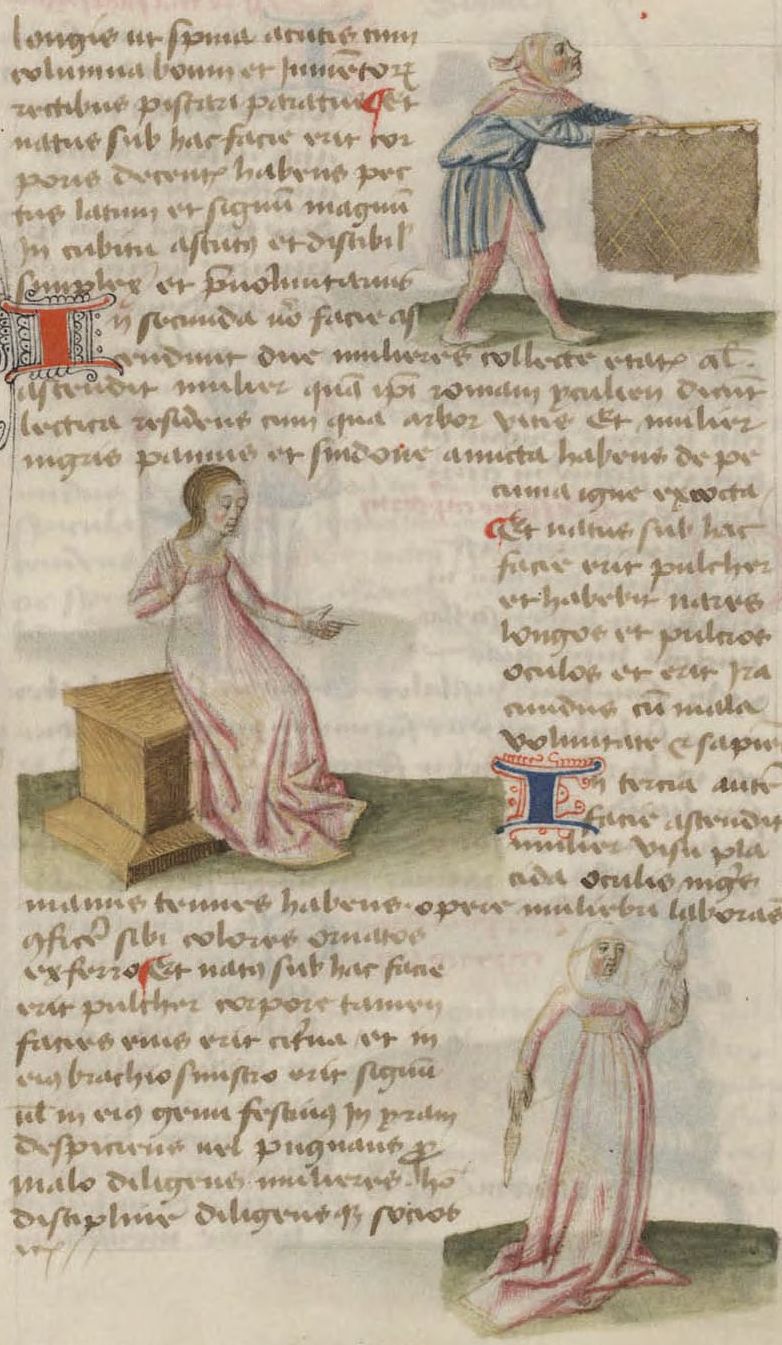 longis ut spina acutis cum
columna boum et Jumētorꝝ
rectibus piscari paratus Et
natus sub hac facie erit cor
poris decentꝭ habens pec
tus latum et signū magnū
In cubitu astutꝯ et
simplex et
In secunda v̄o facie as
cendunt due mulieres collecte etatꝭ al.
ascendit mulier quā ipi romam dicūt
lectica residens cum qua arbor vitis Et mulier
nigris pannis et sindone amicta habens de pe
cunia igne excocta
Et natus sub hac
facie erit pulcher
et habebit nares
longos et pulcros
oculos et erit Ira
cundus cū mala
voluntate et sapiē
In tercia autē
facie ascendit
mulier visu pla
cida oculis nigris
manus tenues habens opere muliebri laborās
ꝯficē sibi colores ornatos
ex ferro Et natꝯ sub hac facie
erit pulcher corpore tamen
facies eius erit cit'na et in
eiꝯ brachio sinistro erit signū
ul' in eiꝯ genu festinꝯ In yram
despiciens uel pugnans ꝑ
malo diligens mulieres ho
discipline diligens socios